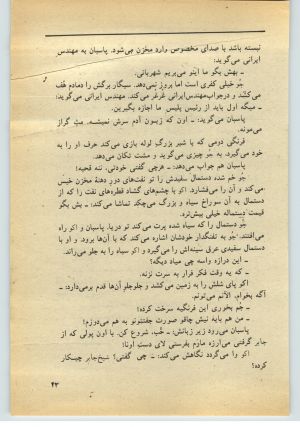 نبسته باشد با صدای مخصوص وارد مخزن می‌شود. پاسبان به مهندس
ایرانی می‌گوید:
ـ بهش بگو ما اینو می‌بریم شهربانی.
جو خیلی کفری است اما بروز نمی‌دهد. سیگار برگش را دمادم پُف
می‌کند و درجواب‌مهندس‌ایرانی غرغر می‌کند. مهندس ایرانی می‌گوید:
ـ میگه اول باید از رئیس پلیس ما اجازه بگیرین.
پاسبان می‌گوید: ـ اون که زبون آدم سرش نمیشه، مث گراز
می‌مونه.
فرنگی دومی که با شیر بزرگ لوله بازی می‌کند حرف او را به
خود می‌گیرد. به جو چیزی می‌گوید و مشت تکان می‌دهد.
پاسبان هم جواب می‌دهد: ـ هرچی گفتی خودتی. ننه قحبه!
جو خم شده دستمال سفیدش را تو نفت‌های دور دهنهٔ مخزن خیس
می‌کند و آن را می‌فشارد. اکو با چشم‌های گشاد قطره‌های نفت را که از
دستمال به آن سوراخ سیاه و بزرگ می‌چکد تماشا می‌کند: ـ بش بگو
قیمت دستماله خیلی بیش‌تره.
جو دستمال را که سیاه شده پرت می‌کند تو دریا. پاسبان و اکو راه
می‌افتند. جو به تفنگدار خودشان اشاره می‌کند که با آن‌ها برود. و او با
دستمال سفیدی عرق سینه‌اش را می‌گیرد و اکو سیاه را به جلو می‌راند.
ـ این درازه واسه چی میاد دیگه؟
ـ که یه وقت فکر فرار به سرت نزنه.
اکو پای شلش را به زمین می‌کشد و جلوجلو آن‌ها قدم برمی‌دارد: ـ
آگه بخوام، الانم می‌تونم.
ـ جم بخوری این فرنگیه سرخت کرده!
ـ من هم بایه نیش چاقو صورت جفتتونو به هم می‌دوزم!
پاسبان می‌رود زیر زبانش: ـ خُب، شروع کن. با اون پولی که از
جابر گرفتی می‌ارزه مارم بفرستی لای دست اونا!
اکو را می‌گردد نگاهش می‌کند: ـ چی گفتی؟ شیخ‌جابر چیـکار
کرده؟
۴۳